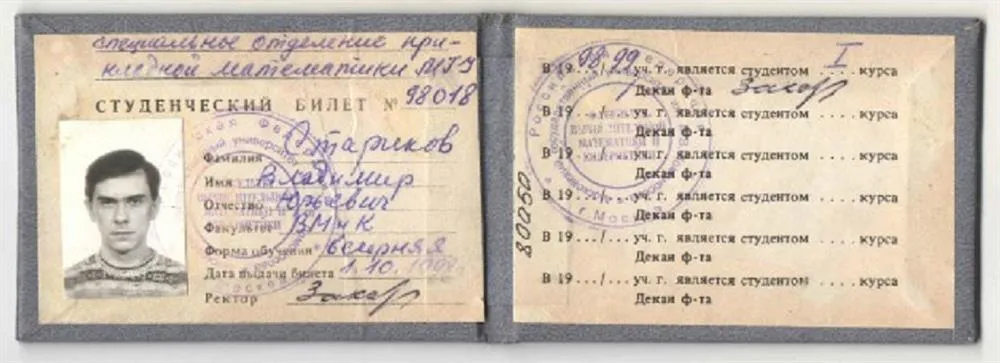 специальное отделение при-
кладной математики МГУ
СТУДЕНЧЕСКИЙ БИЛЕТ № 98018
Фамилия Стариков
Имя Владимир
Отчество Юрьевич
Факультет ВМиК
Форма обучения вечерняя
Дата выдачи билета 1.10.
Ректор
80050
В 19 98/99 уч. г. является студентом I курса
Декан ф-та
В 19.../... уч. г. является студентом .... курса
Декан ф-та
В 19.../... уч. г. является студентом .... курса
Декан ф-та
В 19.../... уч. г. является студентом .... курса
Декан ф-та
В 19.../... уч. г. является студентом .... курса
Декан ф-та
В 19.../... уч. г. является студентом .... курса
Декан ф-та